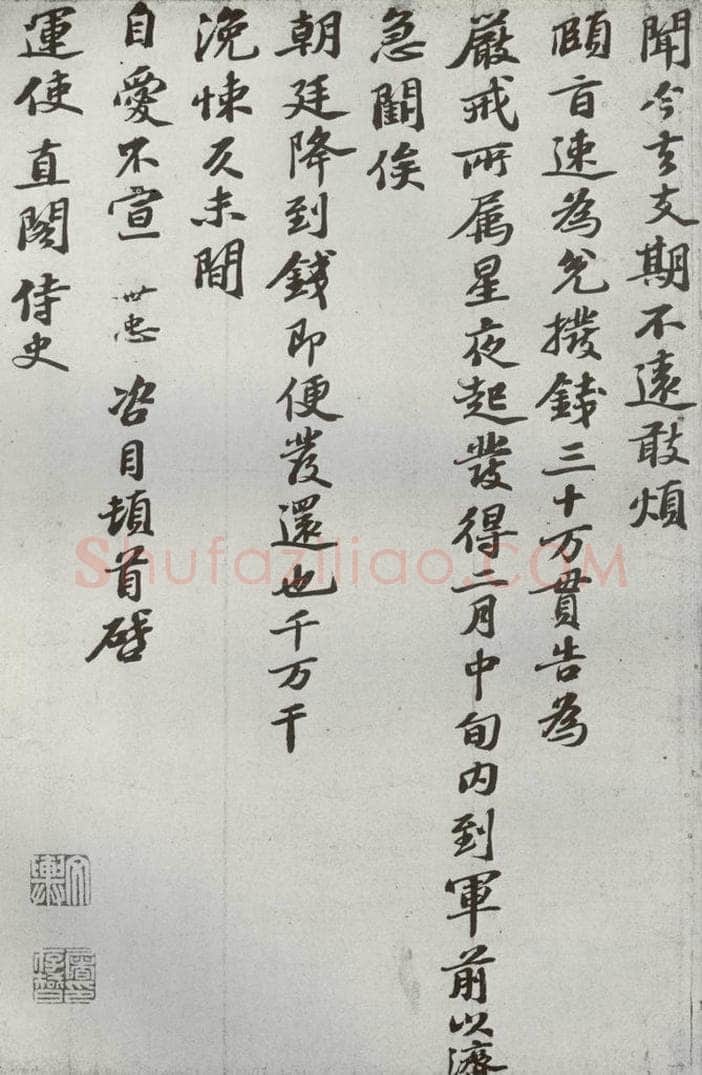 聞今去支期不遠敢煩
頤旨速為兌撥錢三十万貫告為
嚴戒所属星夜起發得二月中旬内到軍前以濟
急闕俟
朝廷降到錢即便發還也千万干
浼悚久未間
自愛不宣 世忠 咨目頓首啓
運使直閣侍史
Shufaziliao.COM